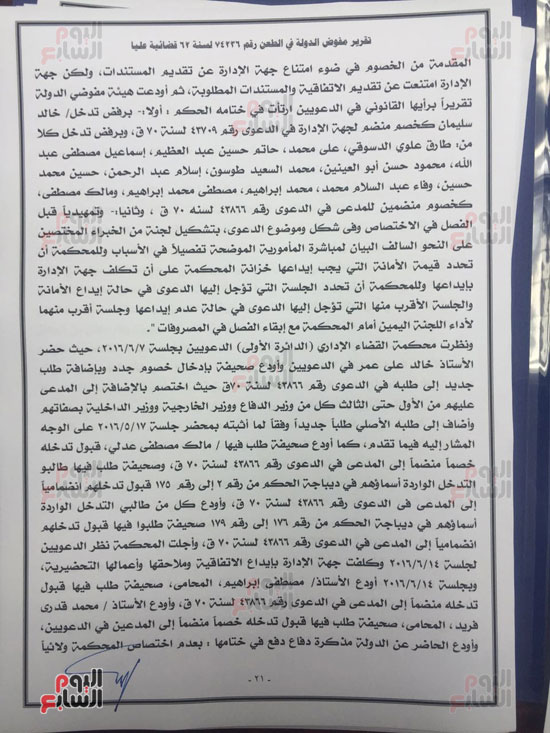 تقرير مفوض الدولة في الطعن رقم ٧٤٢٣٦ لسنة ٦٢ قضائية عليا
المقدمة من الخصوم في ضوء امتناع جهة الإدارة عن تقديم المستندات، ولكن جهة
الإدارة امتنعت عن تقديم الاتفاقية والمستندات المطلوبة، ثم أودعت هيئة مفوضي الدولة
تقريراً برأيها القانوني في الدعويين ارتأت في ختامه الحكم : أولا:- برفض تدخل/ خالد
سليمان كخصم منضم لجهة الإدارة في الدعوى رقم ٤٣٧٠٩ لسنة ٧٠ ق، وبرفض تدخل كلا
من: طارق علوي الدسوقي، على محمد، حاتم حسين عبد العظيم، إسماعيل مصطفى عبد
الله، محمود حسن أبو العينين، محمد السعيد طوسون، إسلام عبد الرحمن، حسين محمد
حسين، وفاء عبد السلام محمد، محمد إبراهيم، مصطفى محمد إبراهيم، ومالك مصطفى،
كخصوم منضمين للمدعى في الدعوى رقم ٤٣٨٦٦ لسنه ٧٠ ق ، وثانيا:- وتمهيدياً قبل
الفصل في الاختصاص وفى شكل وموضوع الدعوى، بتشكيل لجنة من الخبراء المختصين
على النحو السالف البيان لمباشرة المأمورية الموضحة تفصيلاً في الأسباب وللمحكمة أن
تحدد قيمة الأمانة التي يجب إيداعها خزانة المحكمة على أن تكلف جهة الإدارة
بإيداعها وللمحكمة أن تحدد الجلسة التي تؤجل إليها الدعوى في حالة إيداع الأمانة
والجلسة الأقرب منها التي تؤجل إليها الدعوى في حالة عدم إيداعها وجلسة أقرب منهما
لأداء اللجنة اليمين أمام المحكمة مع إبقاء الفصل في المصروفات ".
ونظرت محكمة القضاء الإداري (الدائرة الأولى) الدعويين بجلسة ٢٠١٦/٦/٧، حيث حضر
الأستاذ خالد على عمر في الدعويين وأودع صحيفة بإدخال خصوم جدد وبإضافة طلب
جديد إلى طلبه في الدعوى رقم ٤٣٨٦٦ لسنة ٧٠ق حيث اختصم بالإضافة إلى المدعى
عليهم من الأول حتى الثالث كل من وزير الدفاع ووزير الخارجية ووزير الداخلية بصفاتهم
وأضاف إلى طلبه الأصلي طلباً جديداً وفقاً لما أثبته بمحضر جلسة ٢٠١٦/٥/١٧ على الوجه
المشار إليه فيما تقدم، كما أودع صحيفة طلب فيها / مالك مصطفى عدلي، قبول تدخله
خصماً منضماً إلى المدعى في الدعوى رقم ٤٣٨٦٦ لسنة ٧٠ ق، وصحيفة طلب فيها طالبو
التدخل الواردة أسماؤهم في ديباجة الحكم من رقم ٢ إلى رقم ١٧٥ قبول تدخلهم انضمامياً
إلى المدعى فى الدعوى رقم ٤٣٨٦٦ لسنة ٧٠ ق، وأودع كل من طالبي التدخل الواردة
أسماؤهم في ديباجة الحكم من رقم ١٧٦ إلى رقم ١٧٩ صحيفة طلبوا فيها قبول تدخلهم
انضمامياً إلى المدعى في الدعوى رقم ٤٣٨٦٦ لسنة ٧٠ ق، وأجلت المحكمة نظر الدعويين
لجلسة ٢٠١٦/٦/١٤ وكلفت جهة الإدارة بإيداع الاتفاقية وملاحقها وأعمالها التحضيرية،
وبجلسة ٢٠١٦/٦/١٤ أودع الأستاذ/ مصطفى إبراهيم، المحامى، صحيفة طلب فيها قبول
تدخله منضماً إلى المدعى في الدعوى رقم ٤٣٨٦٦ لسنة ٧٠ ق، وأودع الأستاذ / محمد قدرى
فريد، المحامى، صحيفة طلب فيها قبول تدخله خصماً منضماً إلى المدعين في الدعويين،
وأودع الحاضر عن الدولة مذكرة دفاع دفع في ختامها : بعدم اختصاص المحكمة ولائياً
- ٢١ -
اليوم السابع
اليوم السابع
اليوم السابع